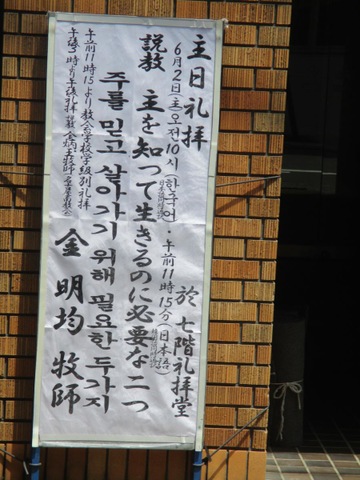 主日礼拝
6月2日(主)오전10시(한국어)・午前11時15分(日本語)
於 七階礼拝堂
説教 主を知って生きるのに必要な二つ
주를 믿고 살아가기 위해 필요한 두가지
金 明均 牧師
午前11時15より教会学校学級別礼拝
午後3時より午後礼拝